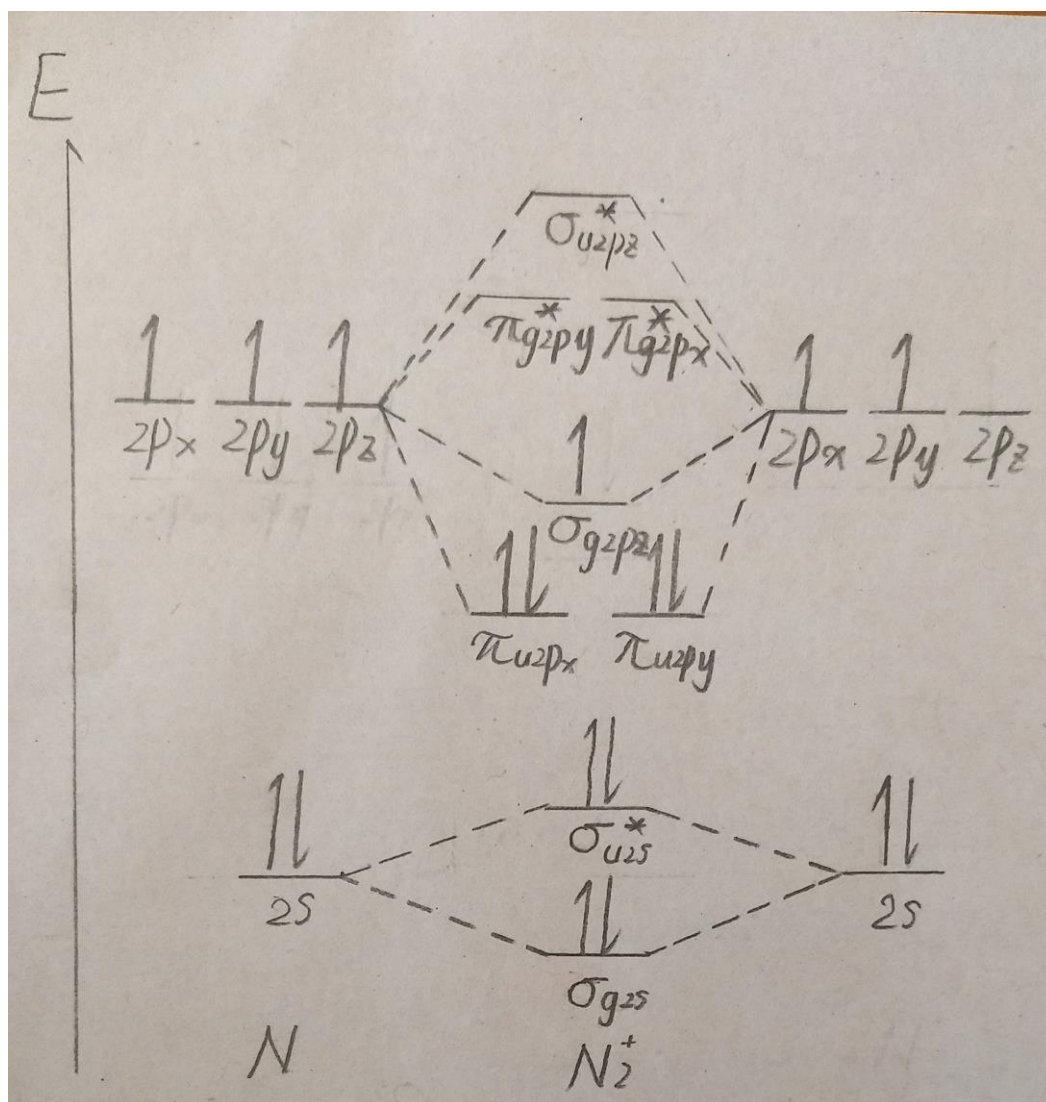 E
σ*u2pz
π*g2py π*g2px
2px 2py 2pz
2px 2py 2pz
σg2pz
πu2px πu2py
σ*u2s
2s
2s
σg2s
N
N2+